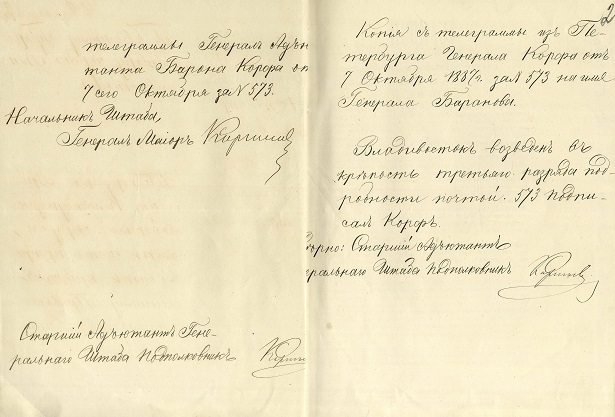 телеграммы Генералъ Адъю
танта Барона Корфа от
7 сего Октября за № 573.
Начальникъ Штаба,
Генералъ Маіоръ
Старшій Адъютантъ Гене-
ральнаго Штаба Подполковникъ
2
Копія съ телеграммы изъ Пе-
тербурга Генерала Корфа отъ
7 Октября 1887 г. за № 573 на имя
Генерала Баранова.
Владивостокъ возведенъ въ
крѣпость третьяго разряда под-
робности почтой. 573 подпи-
салъ Корфъ.
ѣрно: Старшій Адъютантъ
еральнаго Штаба Подполковникъ